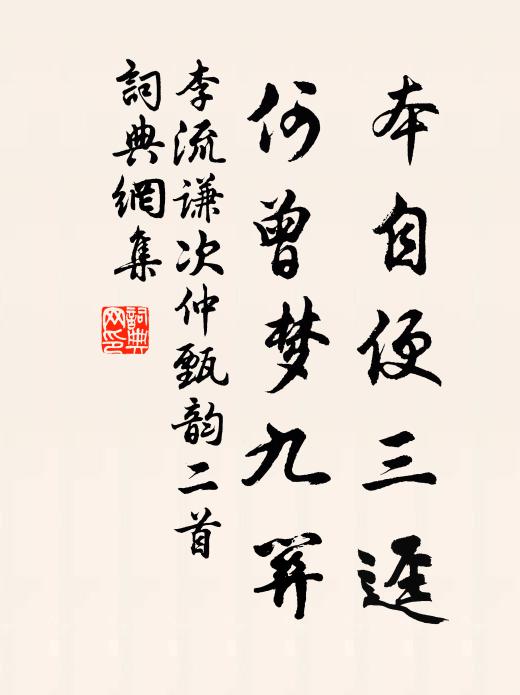 本自便三逕
何曾梦九
李流谦次仲甄韵二首
詞典網集
詞典
网印